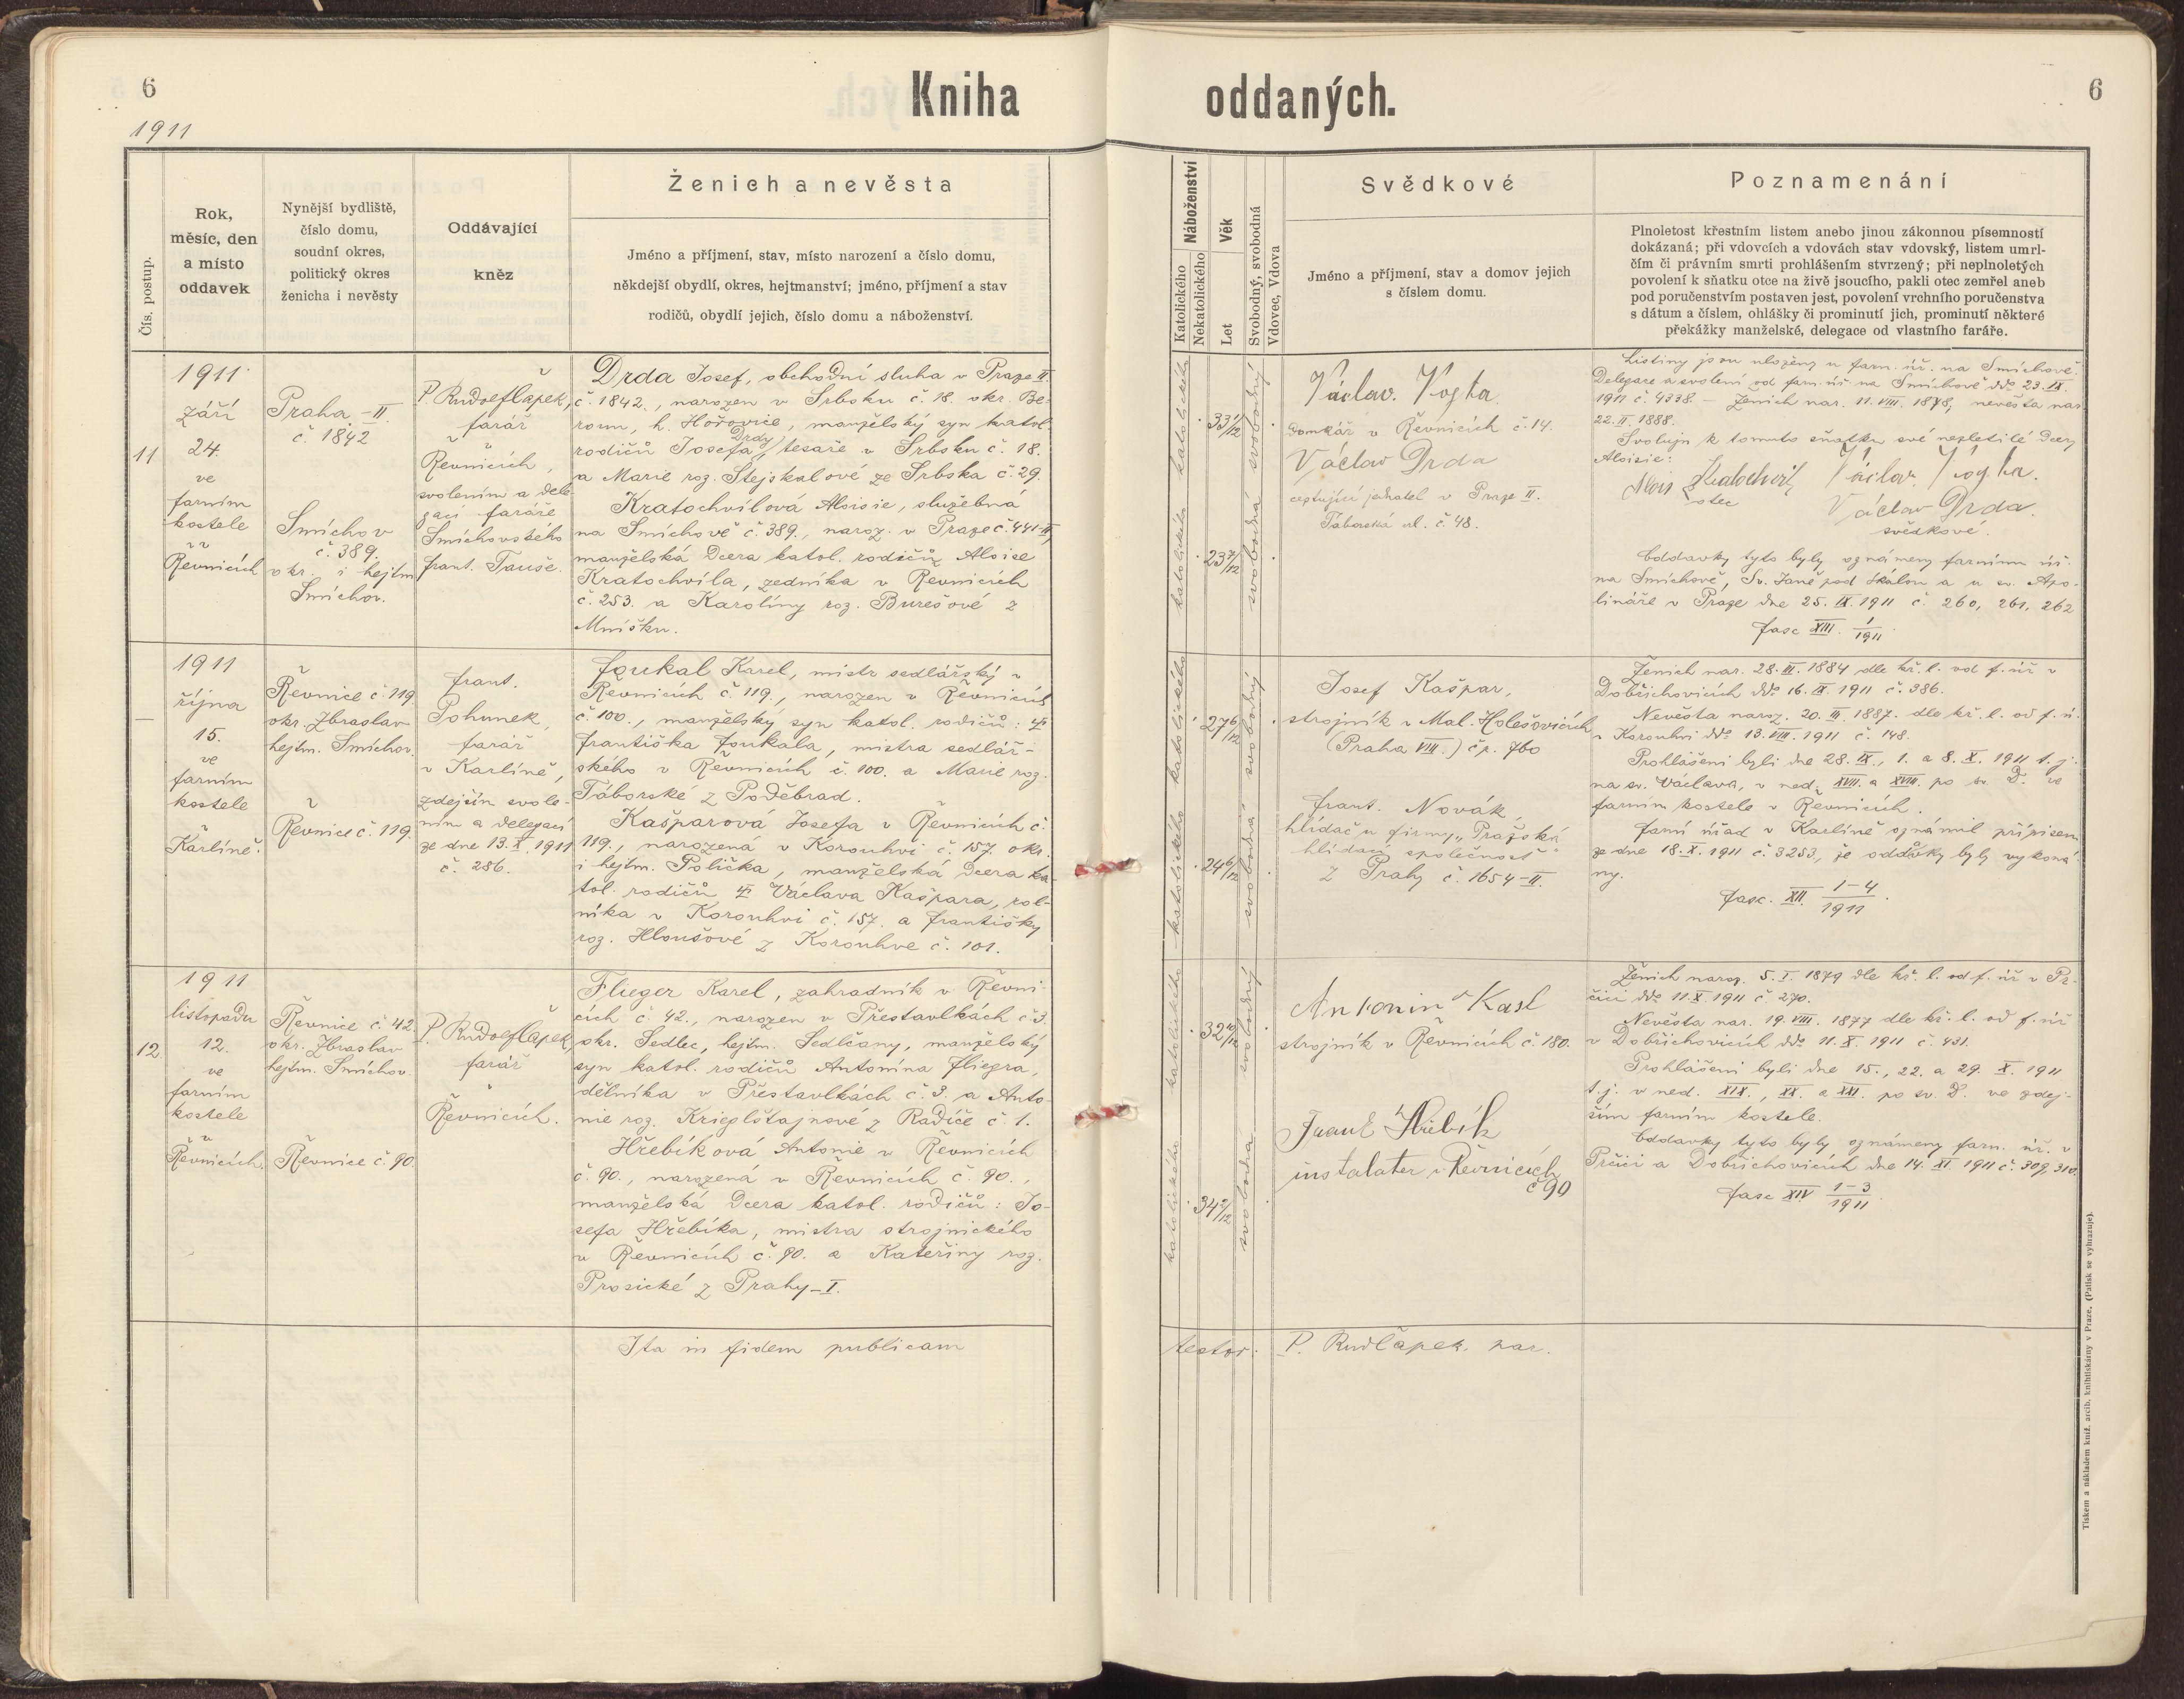 6
Kniha
oddaných.
6
1911
Čís. postup.
Rok,
měsíc, den
a místo
oddavek
Nynější bydliště,
číslo domu,
soudní okres,
politický okres
ženicha i nevěsty
Oddávající
kněz
Ženich a nevěsta
Jméno a příjmení, stav, místo narození a číslo domu,
někdejší obydlí, okres, hejtmanství; jméno, příjmení a stav
rodičů, obydlí jejich, číslo domu a náboženství.
Náboženství
Katolického
Nekatolického
Věk
Let
Svobodný, svobodná
Vdovec, Vdova
Svědkové
Jméno a příjmení, stav a domov jejich
s číslem domu.
Poznamenání
Plnoletost křestním listem anebo jinou zákonnou písemností
dokázaná; při vdovcích a vdovách stav vdovský, listem umrl-
čím či právním smrti prohlášením stvrzený; při neplnoletých
povolení k sňatku otce na živě jsoucího, pakli otec zemřel aneb
pod poručenstvím postaven jest, povolení vrchního poručenstva
s dátum a číslem, ohlášky či prominutí jich, prominutí některé
překážky manželské, delegace od vlastního faráře.
11
1911
září
24.
ve
farním
kostele
v
Řevnicích
Praha-II.
č. 1842
Smíchov
č. 389.
okr. i hejtm.
Smíchov.
P. Rudolf Čapek,
farář
v
Řevnicích,
svolením a dele-
gací faráře
Smíchovského
Frant. Tauše.
Drda Josef, obchodní sluha v Praze II.
č. 1842., narozen v Srbsku č. 18. okr. Be-
roun, h. Hořovice, manželský syn katol.
rodičů Josefa Drdy, tesaře v Srbsku č. 18.
a Marie roz. Stejskalové ze Srbska č. 29.
Kratochvílová Aloisie, služebná
na Smíchově č. 389., naroz. v Praze č. 441-II,
manželská dcera katol. rodičů Aloise
Kratochvíla, zedníka v Řevnicích
č. 253. a Karolíny roz. Burešové z
Mníšku.
katolického
katolického
33 1/12
23 7/12
svobodný
svobodná
Václav Vogta
domkář v Řevnicích č. 14.
Václav Drda
cestující jednatel v Praze II.
Táborská ul. č. 48.
Listiny jsou uloženy u farn. úř. na Smíchově.
Delegace a svolení od farn. úř. na Smíchově dd. 23. IX.
1911 č. 4338. – Ženich nar. 11. VIII. 1878, nevěsta nar.
22. II. 1888.
Svoluji k tomuto sňatku své nezletilé dcery
Aloisie:
Alois Kratochvíl Václav Vogta.
otec Václav Drda.
svědkové.
Oddavky tyto byly oznámeny farnímu úř.
na Smíchově, Sv. Janě pod Skálou a u sv. Apo-
lináře v Praze dne 25. IX. 1911 č. 260, 261, 262
fasc XIII. 1/1911.
—
1911
října
15.
ve
farním
kostele
v
Karlíně.
Řevnice č. 119
okr. Zbraslav
hejtm. Smíchov.
Řevnice č. 119.
Frant.
Pohunek,
farář
v Karlíně,
zdejším svole-
ním a delegací
ze dne 13. X. 1911
č. 286.
Foukal Karel, mistr sedlářský v
Řevnicích č. 119., narozen v Řevnicích
č. 100., manželský syn katol. rodičů: †
Františka Foukala, mistra sedlář-
ského v Řevnicích č. 100. a Marie roz.
Táborské z Poděbrad.
Kašparová Josefa v Řevnicích č.
119., narozená v Korouhvi č. 157. okr.
i hejtm. Polička, manželská dcera ka-
tol. rodičů † Václava Kašpara, rol-
níka v Korouhvi č. 157. a Františky
roz. Hloušové z Korouhve č. 101.
katolického
katolického
27 6/12
24 6/12
svobodný
svobodná
Josef Kašpar,
strojník v Mal. Holešovicích
(Praha VIII.) čp. 760
Frant. Novák,
hlídač u firmy „Pražská
hlídací společnost“
z Prahy č. 1654-II.
Ženich nar. 28. III. 1884 dle kř. l. od f. úř. v
Dobřichovicích dd. 16. IX. 1911 č. 386.
Nevěsta naroz. 20. III. 1887. dle kř. l. od f. ú.
v Korouhvi dd. 13. VIII. 1911 č. 148.
Prohlášeni byli dne 28. IX., 1. a 8. X. 1911 t. j.
na sv. Václava, v ned. XVII. a XVIII. po sv. D. ve
farním kostele v Řevnicích.
Farní úřad v Karlíně oznámil přípisem
ze dne 18. X. 1911 č. 3253, že oddavky byly vykoná-
ny.
fasc. XII. 1-4/1911.
12.
1911
listopadu
12.
ve
farním
kostele
v
Řevnicích.
Řevnice č. 42.
okr. Zbraslav
hejtm. Smíchov.
Řevnice č. 90.
P. Rudolf Čapek,
farář
v
Řevnicích.
Flieger Karel, zahradník v Řevni-
cích č. 42., narozen v Přestavlkách č. 3.
okr. Sedlec, hejtm. Sedlčany, manželský
syn katol. rodičů Antonína Fliegra,
dělníka v Přestavlkách č. 3. a Anto-
nie roz. Krieglštajnové z Radíče č. 1.
Hřebíková Antonie v Řevnicích
č. 90., narozená v Řevnicích č. 90.,
manželská dcera katol. rodičů: Jo-
sefa Hřebíka, mistra strojnického
v Řevnicích č. 90. a Kateřiny roz.
Prosické z Prahy-I.
katolického
katolického
32 10/12
34 2/12
svobodný
svobodná
Antonín Kasl
strojník v Řevnicích č. 180.
Frant Hřebík
instalater v Řevnicích
č 90
Ženich naroz. 5. I. 1879 dle kř. l. od f. úř. v Pr-
čici dd. 11. X. 1911 č. 270.
Nevěsta nar. 19. VIII. 1877 dle kř. l. od f. úř.
v Dobřichovicích dd. 11. X. 1911 č. 431.
Prohlášeni byli dne 15., 22. a 29. X. 1911
t. j. v ned. XIX., XX. a XXI. po sv. D. ve zdej-
ším farním kostele.
Oddavky tyto byly oznámeny farn. úř. v
Prčici a Dobřichovicích dne 14. XI. 1911 č. 309, 310.
fasc XIV 1-3/1911.
Ita in fidem publicam
testor: P. Rud Čapek, par.
Tiskem a nákladem kníž. arcib. knihtiskárny v Praze. (Patisk se vyhrazuje).